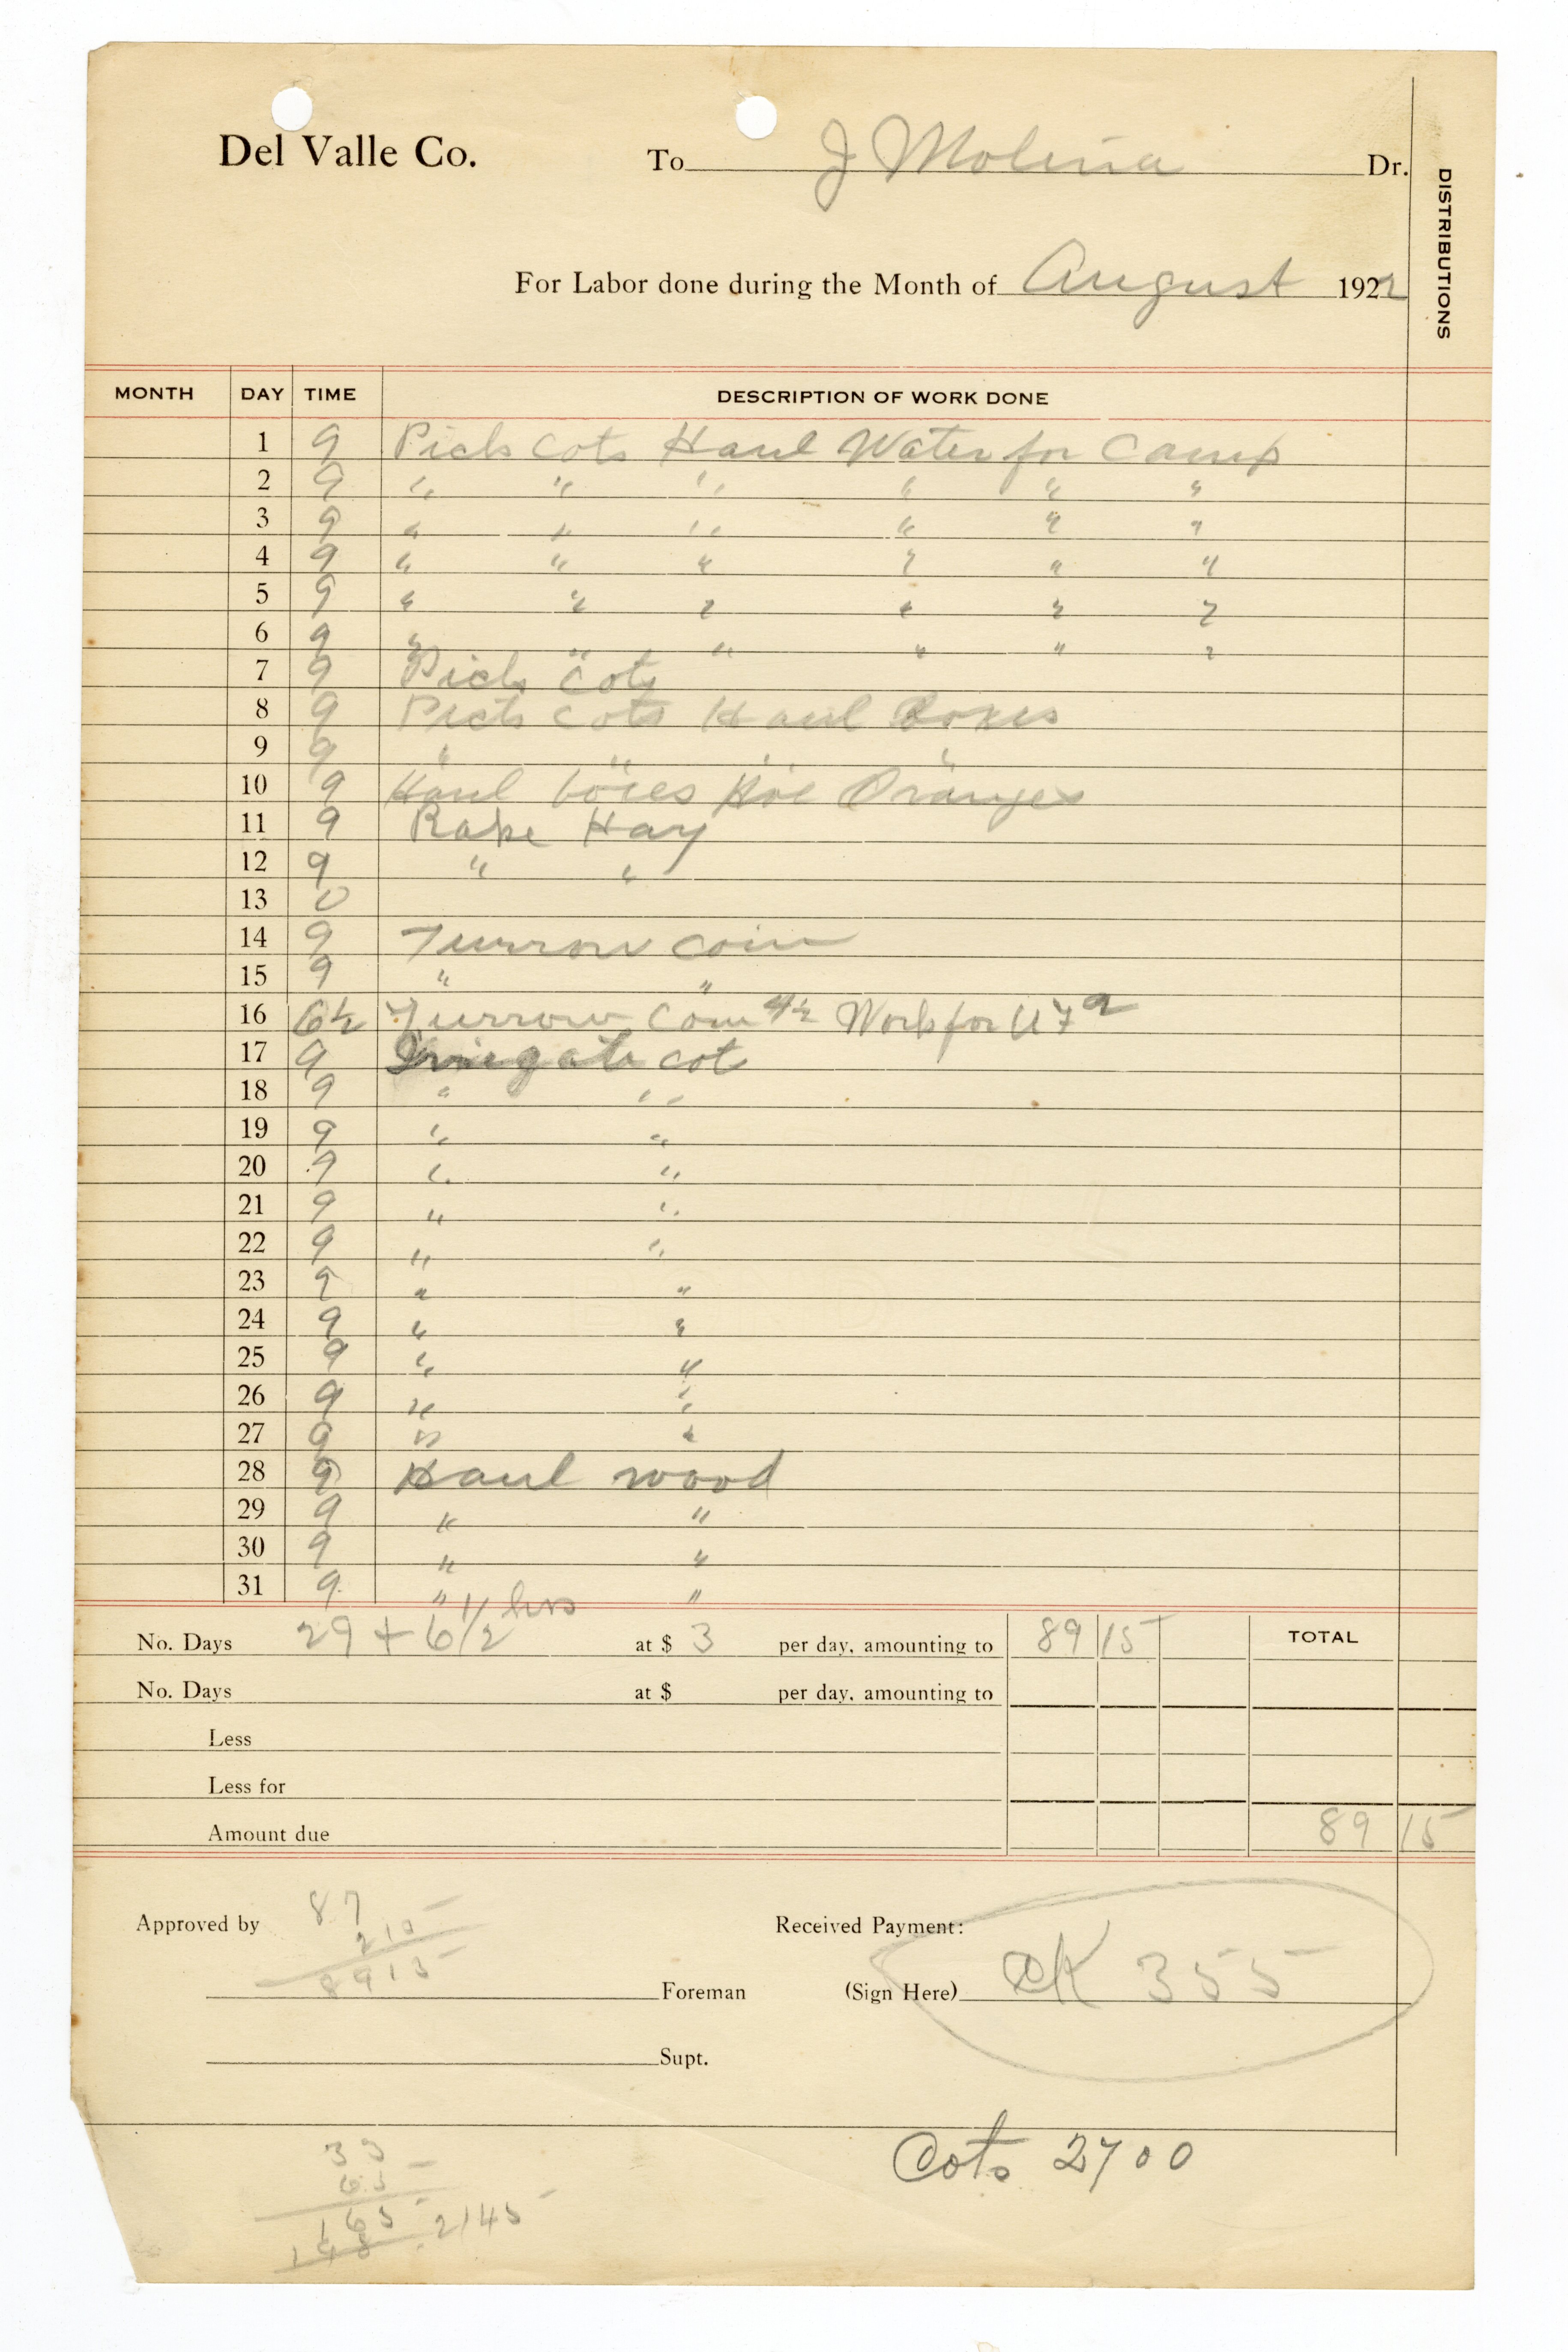 Del Valle Co. To J Molina Dr.
DISTRIBUTIONS
For Labor done during the Month of August 1922
MONTH DAY TIME DESCRIPTION OF WORK DONE
1 9 Pick Cots Haul Water for Camp
2 9 " " " " " "
3 9 " " " " " "
4 9 " " " " " "
5 9 " " " " " "
6 9 " " " " " "
7 9 Pick Cots
8 9 Pick Cots Haul Boxes
9 9 " " " "
10 9 Haul boxes Hoe Oranges
11 9 Rake Hay
12 9 " "
13 0
14 9 Furrow Corn
15 9 " "
16 6½ Furrow Corn 4½ Work for U F
17 9 Irrigate cot
18 9 " "
19 9 " "
20 9 " "
21 9 " "
22 9 " "
23 9 " "
24 9 " "
25 9 " "
26 9 " "
27 9 " "
28 9 Haul wood
29 9 " "
30 9 " "
31 9 " "
No. Days 29 + 6 1/2 hrs at $ 3 per day, amounting to 89 15 TOTAL
No. Days at $ per day, amounting to
Less
Less for
Amount due 89 15
87
Approved by Received Payment:
2 15
89 15
Foreman (Sign Here) CK 355
Supt.
Cots 2700
33
65
165
198 2145